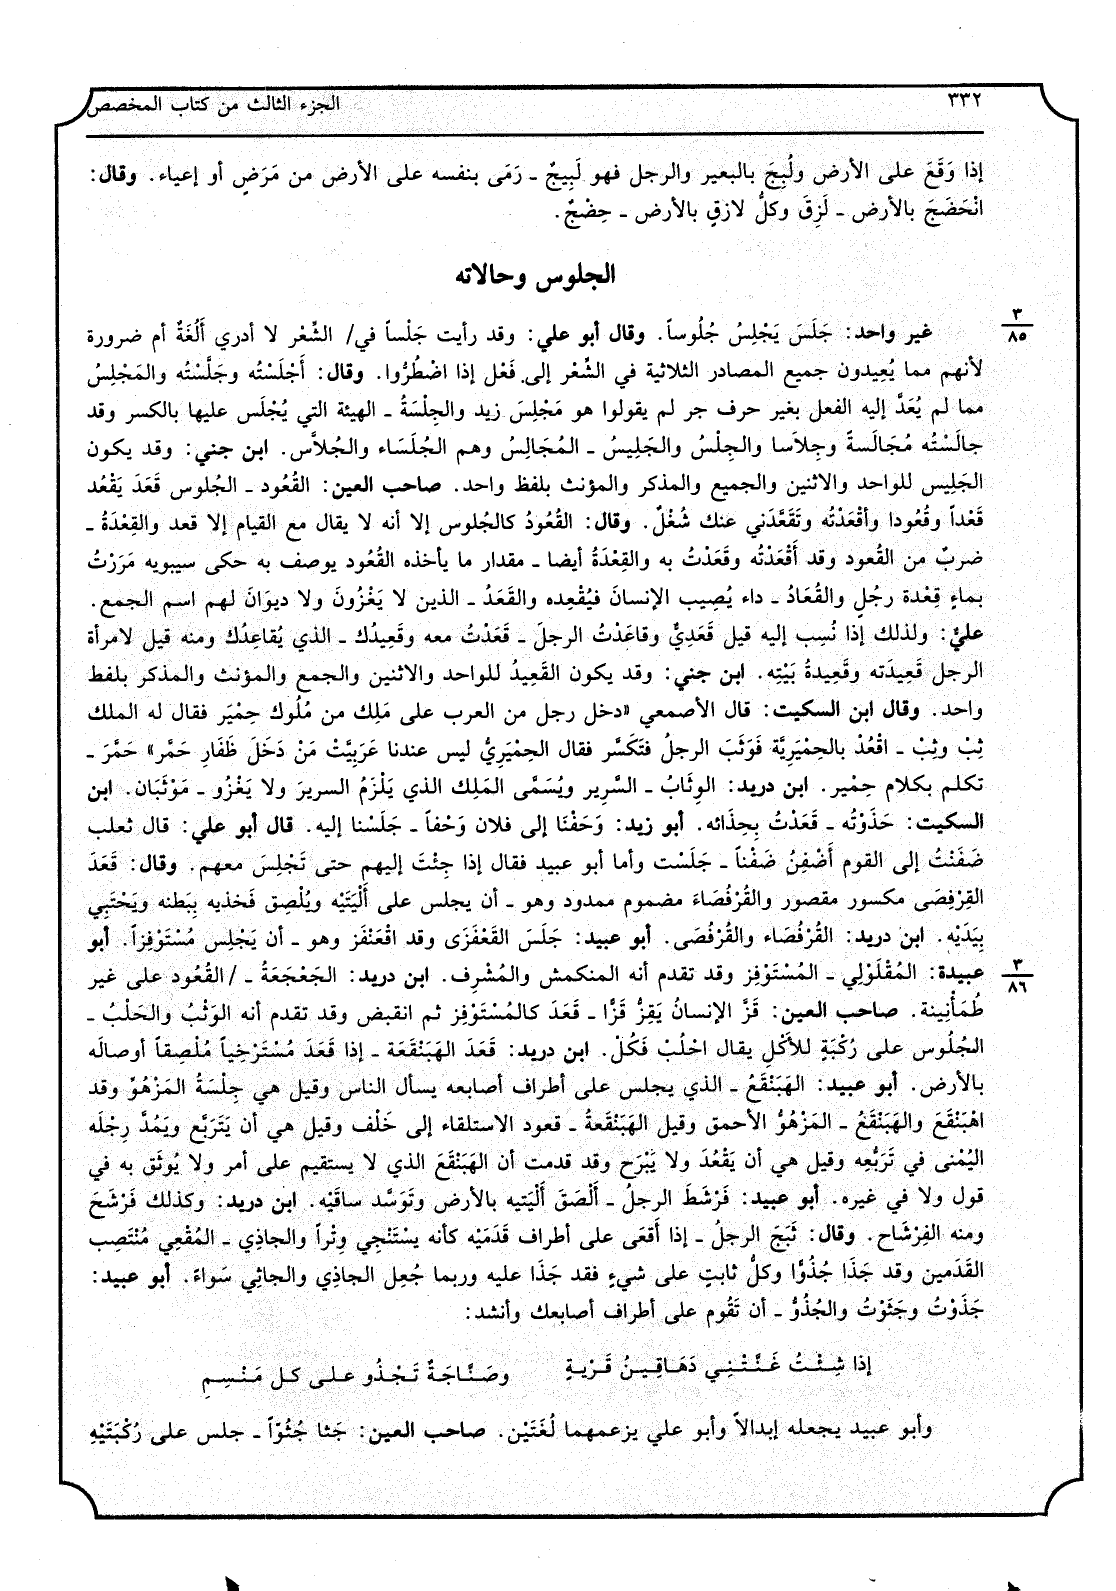 ٣٣٢ الجزء الثالث من كتاب المخصص
إذا وَقَعَ على الأرض ولُبِجَ بالبعير والرجل فهو لَبِيجٌ ـ رَمَى بنفسه على الأرض من مَرَضٍ أو إعياء. وقال:
انْحَضَجَ بالأرض ـ لَزِقَ وكلُّ لازقٍ بالأرض ـ حِضْجٌ.
الجلوس وحالاته
٣
٨٥
غير واحد: جَلَسَ يَجْلِسُ جُلُوساً. وقال أبو علي: وقد رأيت جَلْساً في/ الشِّعْر لا أدري أَلُغَةٌ أم ضرورة
لأنهم مما يُعِيدون جميع المصادر الثلاثية في الشِّعْر إلى فَعْل إذا اضْطُرُّوا. وقال: أَجْلَسْته وجَلَّسْته والمَجْلِسُ
مما لم يُعَدَّ إليه الفعل بغير حرف جر لم يقولوا هو مَجْلِسَ زيد والجِلْسَةُ ـ الهيئة التي يُجْلَس عليها بالكسر وقد
جالَسْتُه مُجَالَسةً وجِلاَسا والجِلْسُ والجَلِيسُ ـ المُجَالِسُ وهم الجُلَسَاء والجُلاَّس. ابن جني: وقد يكون
الجَلِيس للواحد والاثنين والجميع والمذكر والمؤنث بلفظ واحد. صاحب العين: القُعُود ـ الجُلوس قَعَدَ يَقْعُد
قَعْداً وقُعُودا وأقْعَدْتُه وتَقَعَّدَني عنك شُغْلٌ. وقال: القُعُودُ كالجُلوس إلا أنه لا يقال مع القيام إلا قعد والقِعْدَةُ ـ
ضربٌ من القُعود وقد أَقْعَدْتُه وقَعَدْتُ به والقِعْدَةُ أيضا ـ مقدار ما يأخذه القُعُود يوصف به حكى سيبويه مَرَرْتُ
بماءٍ قِعْدة رجُلٍ والقُعَادُ ـ داء يُصِيب الإنسانَ فيُقْعِده والقَعَدُ ـ الذين لا يَغْزُونَ ولا ديوَانَ لهم اسم الجمع.
عليٌّ: ولذلك إذا نُسِب إليه قيل قَعَدِيٌّ وقاعَدْتُ الرجلَ ـ قَعَدْتُ معه وقَعِيدُك ـ الذي يُقاعِدُك ومنه قيل لامرأة
الرجل قَعِيدَته وقَعِيدةُ بَيْتِه. ابن جني: وقد يكون القَعِيدُ للواحد والاثنين والجمع والمؤنث والمذكر بلفط
واحد. وقال ابن السكيت: قال الأصمعي «دخل رجل من العرب على مَلِك من مُلُوك حِمْيَر فقال له الملك
ثِبْ وثِبْ ـ اقْعُدْ بالحِمْيَرِيَّة فَوَثَبَ الرجلُ فتَكَسَّر فقال الحِمْيَرِيُّ ليس عندنا عَرَبِيَّتْ مَنْ دَخَلَ ظَفَارِ حَمَّر» حَمَّرَ ـ
تكلم بكلام حِمْير. ابن دريد: الوِثَابُ ـ السَّرِير ويُسَمَّى المَلِك الذي يَلْزَمُ السريرَ ولا يَغْزُو ـ مَوْثَبَان. ابن
السكيت: حَذَوْتُه ـ قَعَدْتُ بِحِذَائه. أبو زيد: وَحَفْنَا إلى فلان وَحْفاً ـ جَلَسْنا إليه. قال أبو علي: قال ثعلب
ضَفَنْتُ إلى القوم أَضْفِنُ ضَفْناً ـ جَلَسْت وأما أبو عبيد فقال إذا جِئْتَ إليهم حتى تَجْلِسَ معهم. وقال: قَعَدَ
القِرْفِصَى مكسور مقصور والقُرْفُصَاءَ مضموم ممدود وهو ـ أن يجلس على أَلْيَتَيْه ويُلْصِق فَخذيه بِبَطنه ويَحْتَبِي
بِيَدَيْه. ابن دريد: القُرْفُصَاء والقُرْفُصَى. أبو عبيد: جَلَسَ القَعْفَزَى وقد اقْعَنْفَز وهو ـ أن يَجْلِس مُسْتَوْفِزاً. أبو
٣
٨٦
عبيدة: المُقْلَوْلِي ـ المُسْتَوْفِز وقد تقدم أنه المنكمش والمُشْرِف. ابن دريد: الجَعْجَعَةُ ـ /القُعُود على غير
طُمَأْنِينة. صاحب العين: قَزَّ الإنسانُ يَقِزُّ قَزًّا ـ قَعَدَ كالمُسْتَوْفِز ثم انقبض وقد تقدم أنه الوَثْبُ والحَلْبُ ـ
الجُلُوس على رُكْبَةٍ للأكْلِ يقال احْلُبْ فَكُلْ. ابن دريد: قَعَدَ الهَبَنْقَعَة ـ إذا قَعَدَ مُسْتَرْخِياً مُلْصِقاً أوصالَه
بالأرض. أبو عبيد: الهَبَنْقَعُ ـ الذي يجلس على أطراف أصابعه يسأل الناس وقيل هي جِلْسَةُ المَزْهُوّ وقد
اهْبَنْقَعَ والهَبَنْقَعُ ـ المَزْهُوُّ الأحمق وقيل الهَبَنْقَعةُ ـ قعود الاستلقاء إلى خَلْف وقيل هي أن يَتَرَبَّع ويَمُدَّ رِجْلَه
اليُمْنى في تَرَبُّعِه وقيل هي أن يَقْعُدَ ولا يَبْرَح وقد قدمت أن الهَبَنْقَعَ الذي لا يستقيم على أمر ولا يُوثَق به في
قول ولا في غيره. أبو عبيد: فَرْشَطَ الرجلُ ـ أَلْصَقَ أَلْيَتيه بالأرض وتَوَسَّد ساقَيْه. ابن دريد: وكذلك فَرْشَحَ
ومنه الفِرْشَاح. وقال: ثَبَجَ الرجلُ ـ إذا أَقعَى على أطراف قَدَمَيْه كأنه يسْتَنْجِي وِتْراً والجاذِي ـ المُقْعِي مُنْتَصِب
القَدَمين وقد جَذَا جُذُوًّا وكلُّ ثابتٍ على شيءٍ فقد جَذَا عليه وربما جُعِل الجاذِي والجاثِي سَواءً. أبو عبيد:
جَذَوْتُ وجَثَوْتُ والجُذُوُّ ـ أن تَقُوم على أطراف أصابعك وأنشد:
إذا شِئْتُ غَنَّتْنِي دَهَاقِينُ قَرْيةٍ وصَنَّاجَةٌ تَجْذُو على كل مَنْسِمِ
وأبو عبيد يجعله إبدالاً وأبو علي يزعمهما لُغَتَيْن. صاحب العين: جَثا جُثُوّاً ـ جلس على رُكْبَتَيْهِ